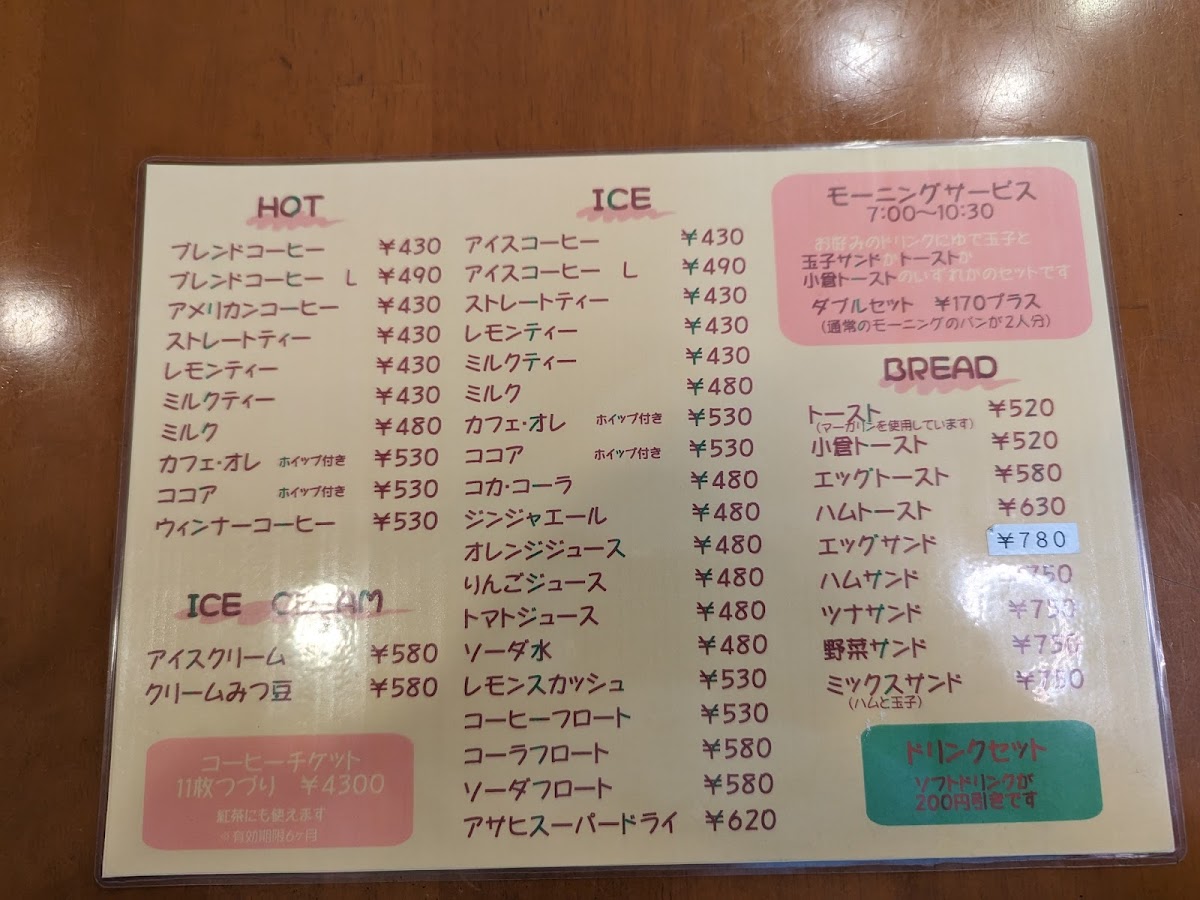 HOT
ブレンドコーヒー ¥430
ブレンドコーヒー L ¥490
アメリカンコーヒー ¥430
ストレートティー ¥430
レモンティー ¥430
ミルクティー ¥430
ミルク ¥480
カフェ・オレ ホイップ付き ¥530
ココア ホイップ付き ¥530
ウィンナーコーヒー ¥530
ICE CREAM
アイスクリーム ¥580
クリームみつ豆 ¥580
コーヒーチケット
11枚つづり ¥4300
紅茶にも使えます
※有効期限6ヶ月
ICE
アイスコーヒー ¥430
アイスコーヒー L ¥490
ストレートティー ¥430
レモンティー ¥430
ミルクティー ¥430
ミルク ¥480
カフェ・オレ ホイップ付き ¥530
ココア ホイップ付き ¥530
コカ・コーラ ¥480
ジンジャエール ¥480
オレンジジュース ¥480
りんごジュース ¥480
トマトジュース ¥480
ソーダ水 ¥480
レモンスカッシュ ¥530
コーヒーフロート ¥530
コーラフロート ¥580
ソーダフロート ¥580
アサヒスーパードライ ¥620
モーニングサービス
7:00〜10:30
お好みのドリンクにゆで玉子と
玉子サンドかトーストか
小倉トーストのいずれかのセットです
ダブルセット ¥170プラス
(通常のモーニングのパンが2人分)
BREAD
トースト ¥520
(マーガリンを使用しています)
小倉トースト ¥520
エッグトースト ¥580
ハムトースト ¥630
エッグサンド ¥780
ハムサンド ¥750
ツナサンド ¥750
野菜サンド ¥750
ミックスサンド
(ハムと玉子)
ドリンクセット
ソフトドリンクが
200円引きです